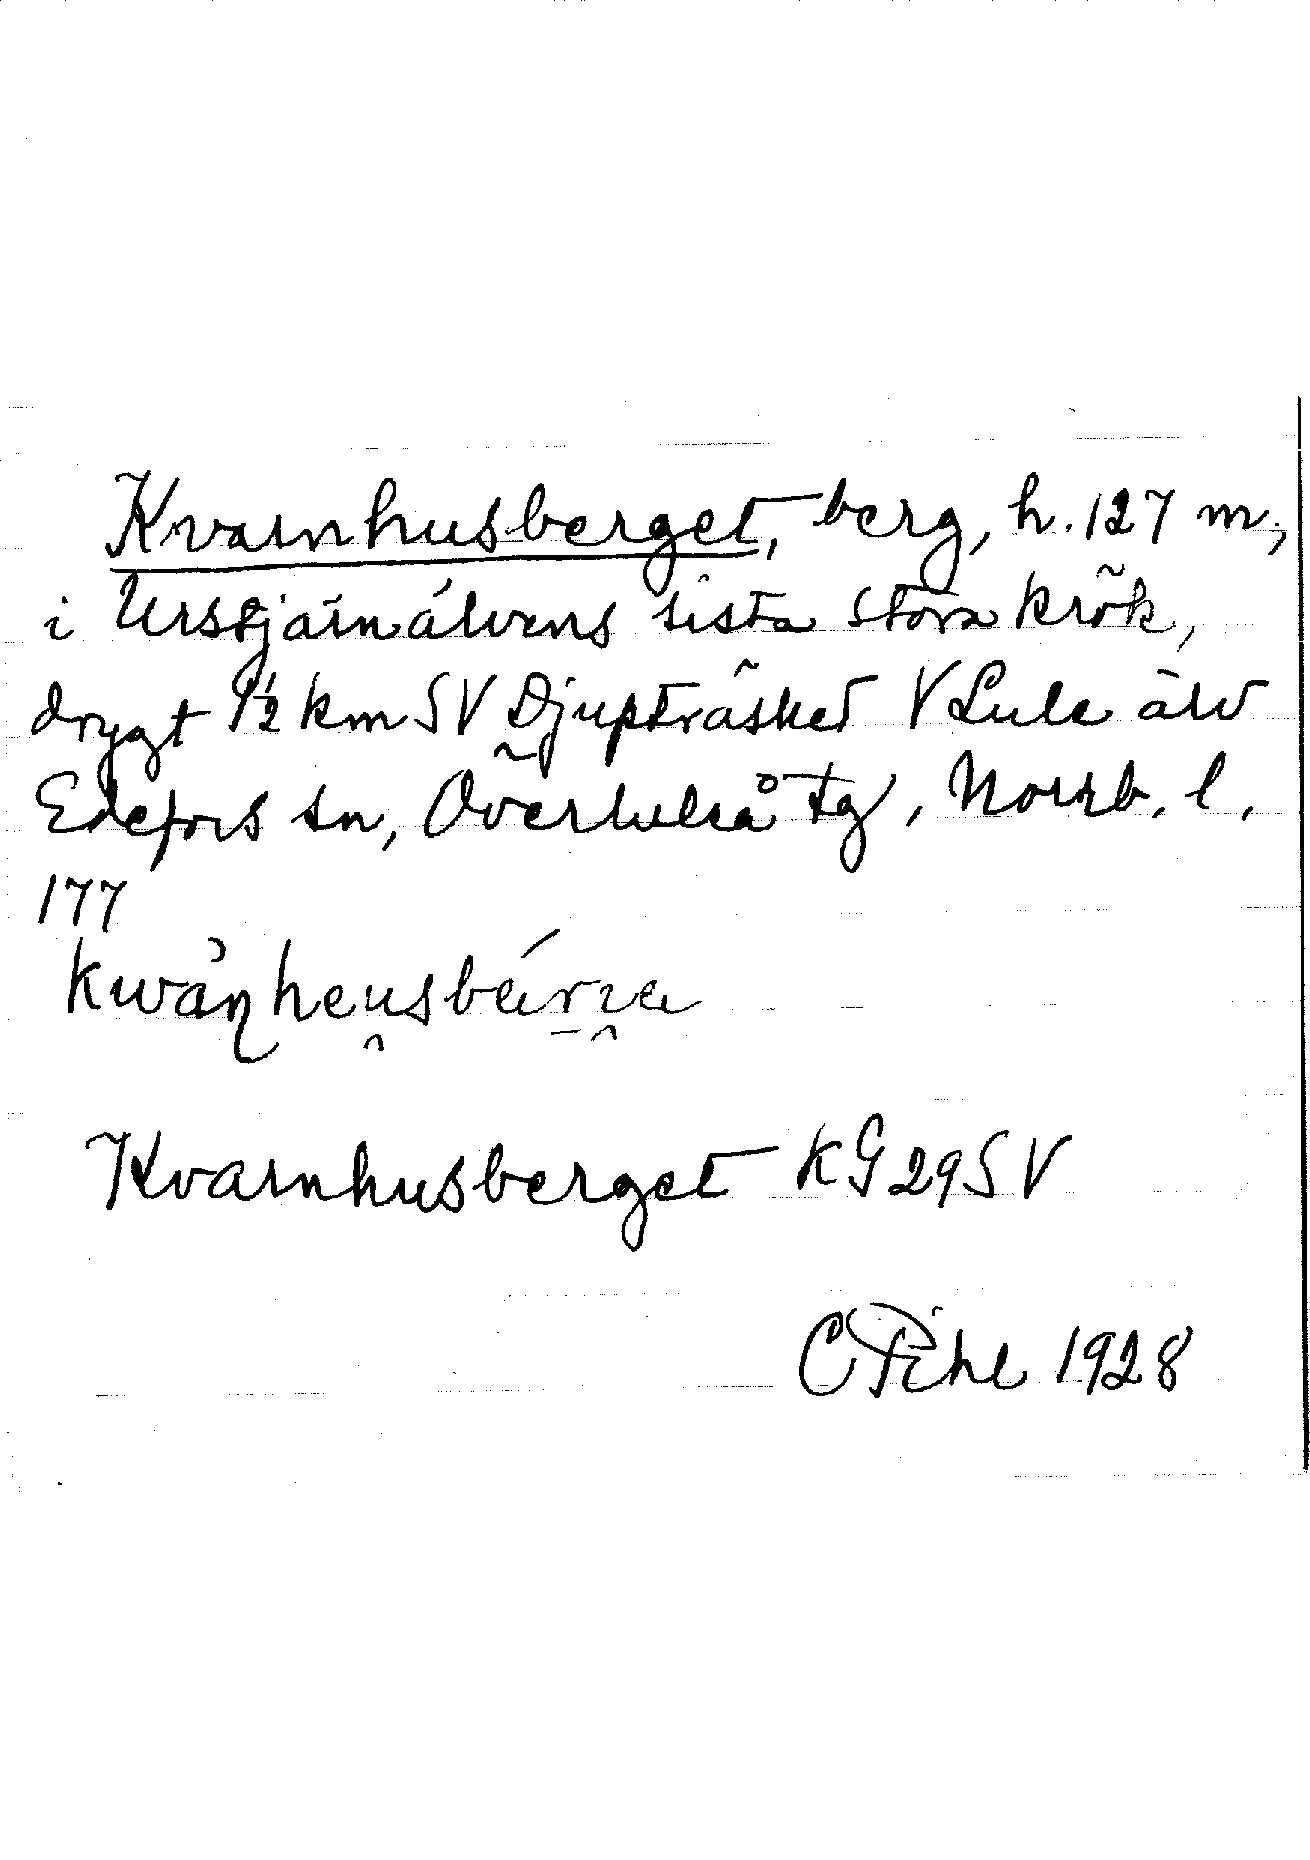 Kvarnhusberget, berg, h. 127 m,
i Urstjärnälvens sista stora krök,
drygt 1½ km SV Djupträsket V Lule älv
Edefors sn, Överluleå tg, Norrb. l.
177
Kvarnhusberget KG29SV
C Pihl 1928